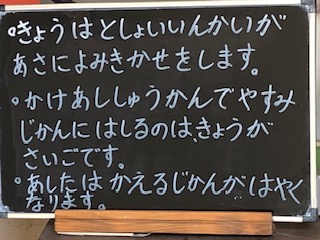 •きょうはとしょいいんかいが
あさによみきかせをします。
•かけあししゅうかんでやすみ
じかんにはしるのは、きょうが
さいごです。
•あしたはかえるじかんがはやく
なります。